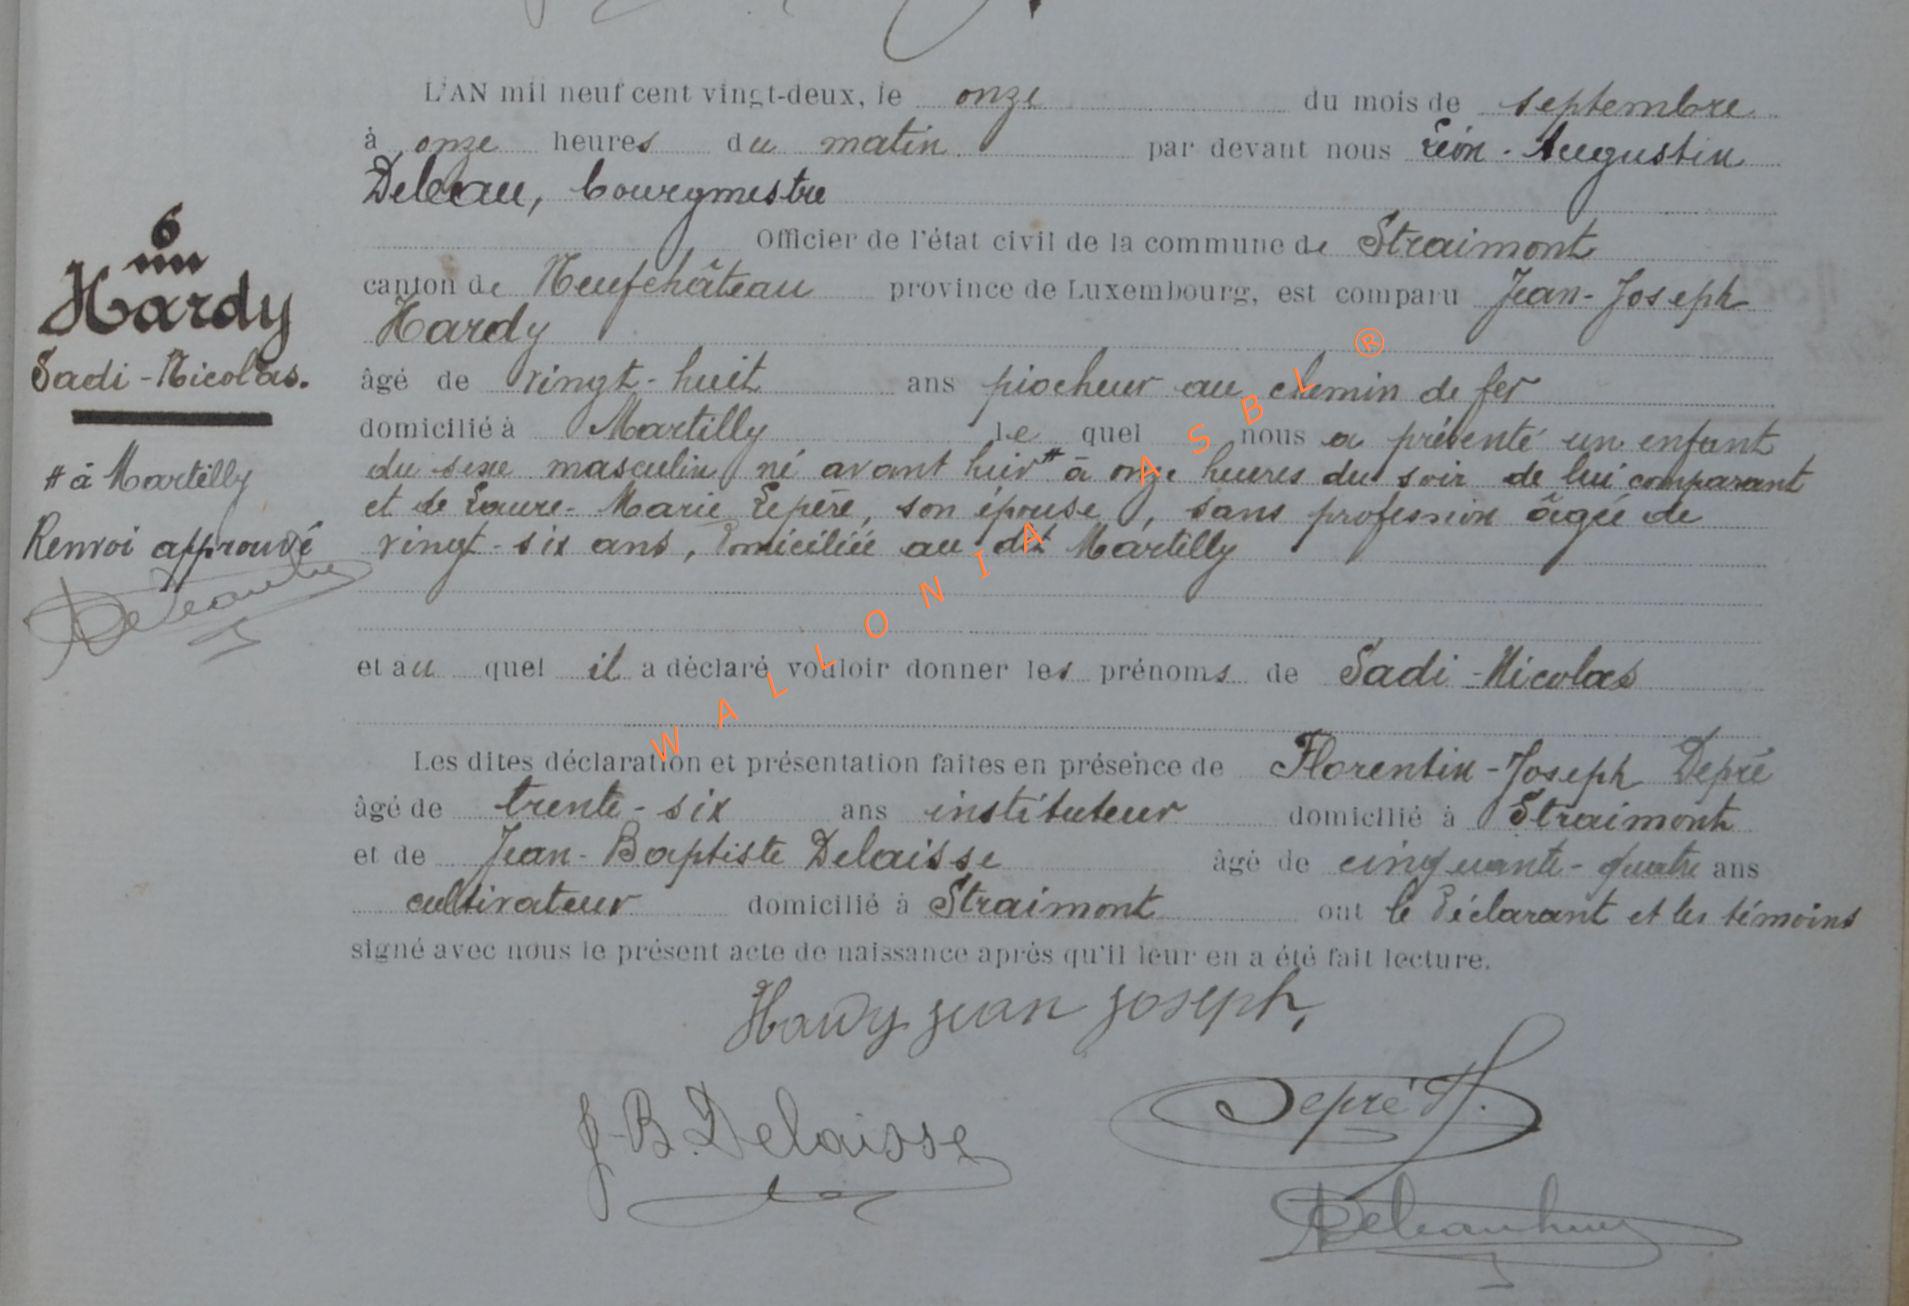 6
Hardy
Sadi-Nicolas.
# à Martilly
Renvoi approuvé
L'AN mil neuf cent vingt-deux, le onze du mois de septembre
à onze heures du matin par devant nous Léon-Augustin
Deleau, bourgmestre
Officier de l'état civil de la commune de Straimont
canton de Neufchâteau province de Luxembourg, est comparu Jean-Joseph
Hardy
âgé de vingt-huit ans piocheur au chemin de fer
domicilié à Martilly le quel nous a présenté un enfant
du sexe masculin, né avant hier # à onze heures du soir de lui comparant
et de Laure-Marie Lepère, son épouse, sans profession âgée de
vingt-six ans, domiciliée au dit Martilly
et au quel il a déclaré vouloir donner les prénoms de Sadi-Nicolas
Les dites déclaration et présentation faites en présence de Florentin-Joseph Depré
âgé de trente-six ans instituteur domicilié à Straimont
et de Jean-Baptiste Delaisse âgé de cinquante-quatre ans
cultivateur domicilié à Straimont ont le déclarant et les témoins
signé avec nous le présent acte de naissance après qu'il leur en a été fait lecture.
Hardy jean joseph,
J-B. Delaisse
Depré
WALLONIA ASBL ®